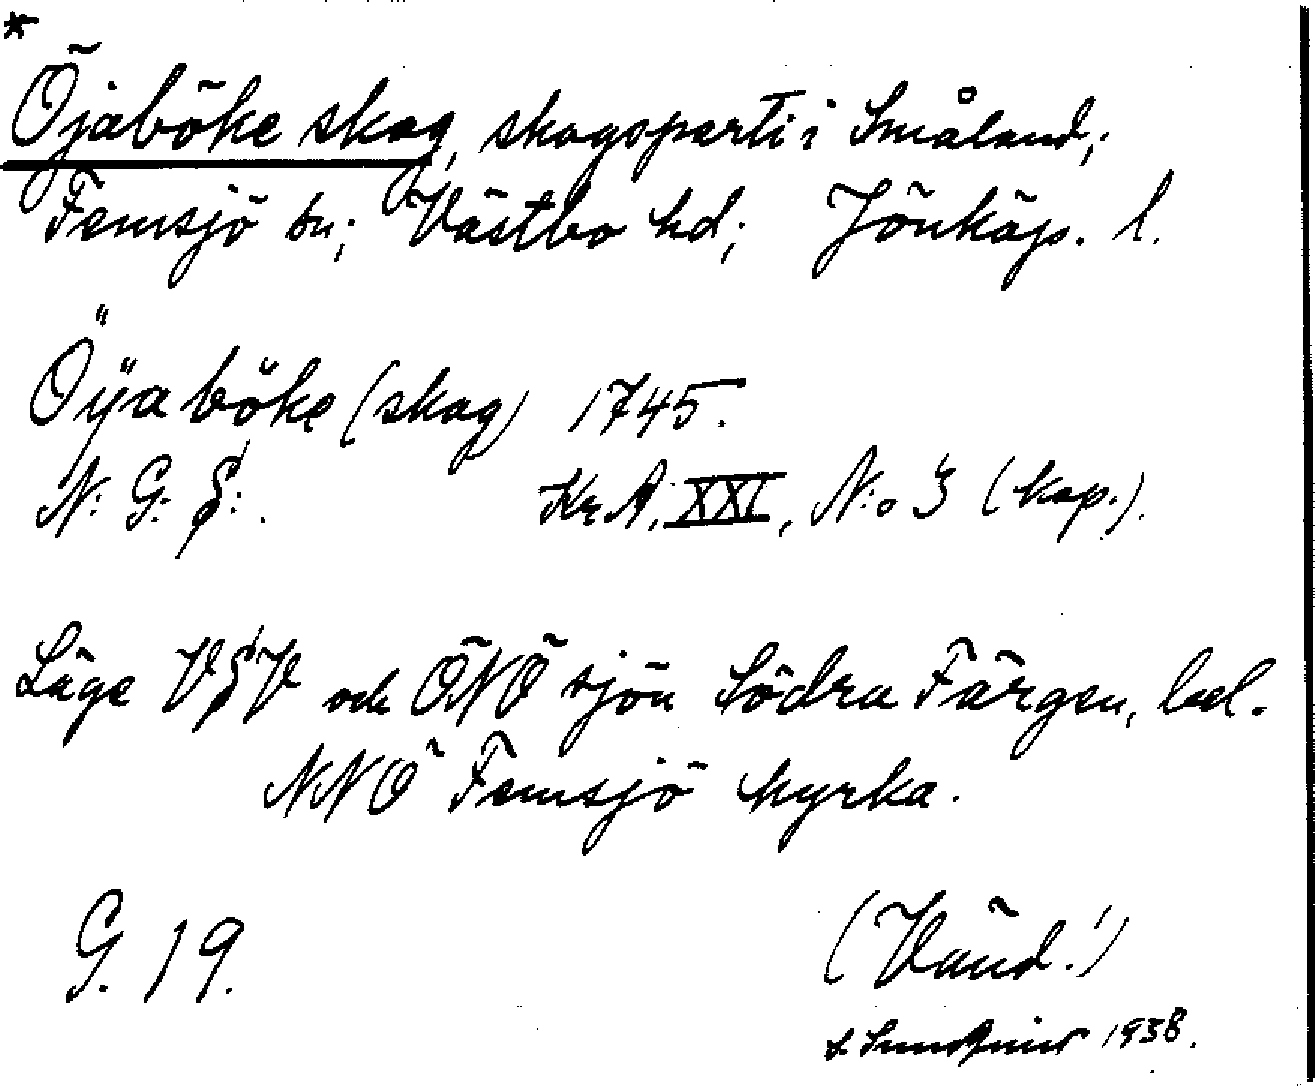 *
Öjaböke skog, skogsparti i Småland;
Femsjö sn; Västbo hd; Jönköp. l.
Öÿa böke (skog) 1745.
N: G: S: . Kr A, XXI, N:o 3 (kop.).
Läge VSV och ÖNÖ sjön Södra Färgen, bel.
NNÖ Femsjö kyrka.
G. 19. (Vänd!)
1938.